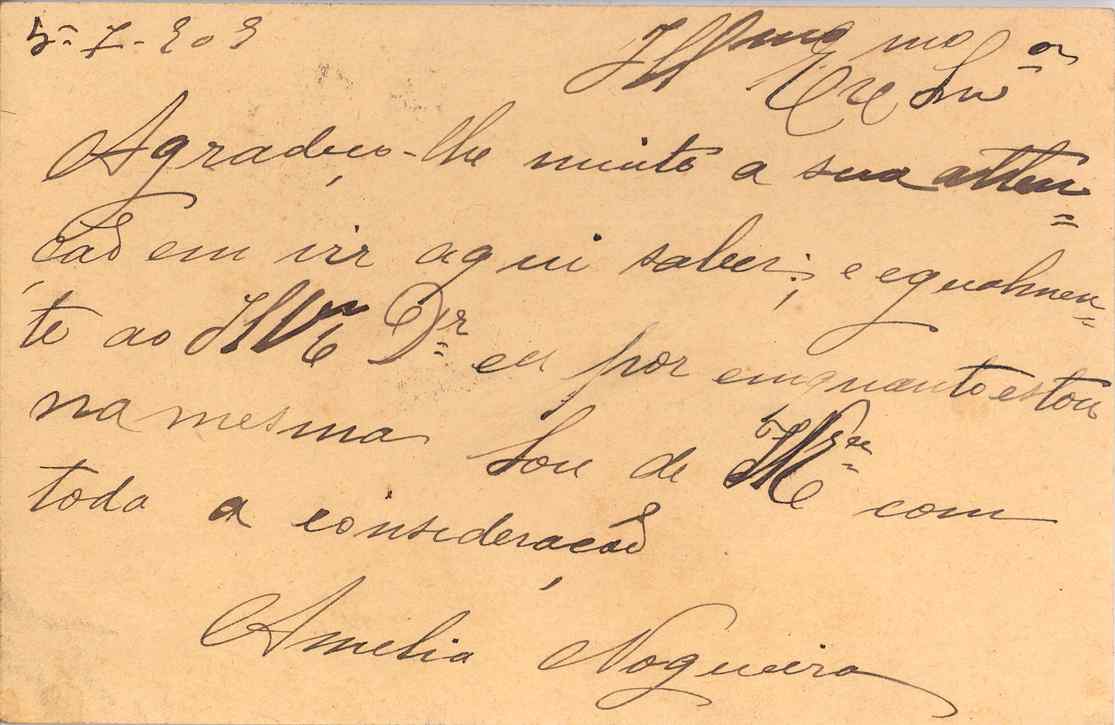 5-7-909
Illmo mo
Exe Snr or
Agradeço-lhe muito a sua atten=
ção em vir aqui saber; e egualmen=
te ao Dr eu por emquanto estou
na mesma Sou de com
toda a consideração
Amelia Nogueira